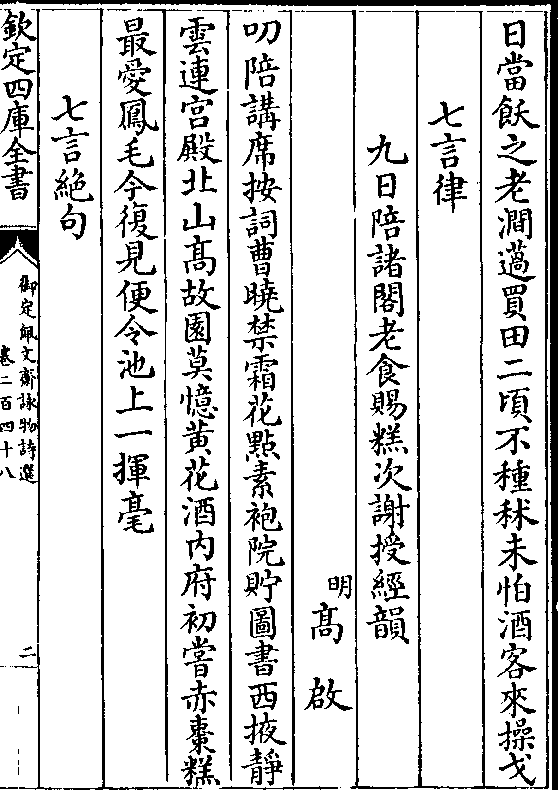 日當飫之老澗薖買田二頃不種秫未怕酒客來操戈
七言律
九日陪諸閣老食賜糕次謝授經韻
明髙啟
叨陪講席按詞曹曉禁霜花㸃素袍院貯圖書西掖靜
雲連宫殿北山髙故園莫憶黄花酒内府初嘗赤棗糕
最愛鳳毛今復見便令池上一揮毫
七言絶句
欽定四庫全書
御定佩文齋詠物詩選
卷二百四十八
二